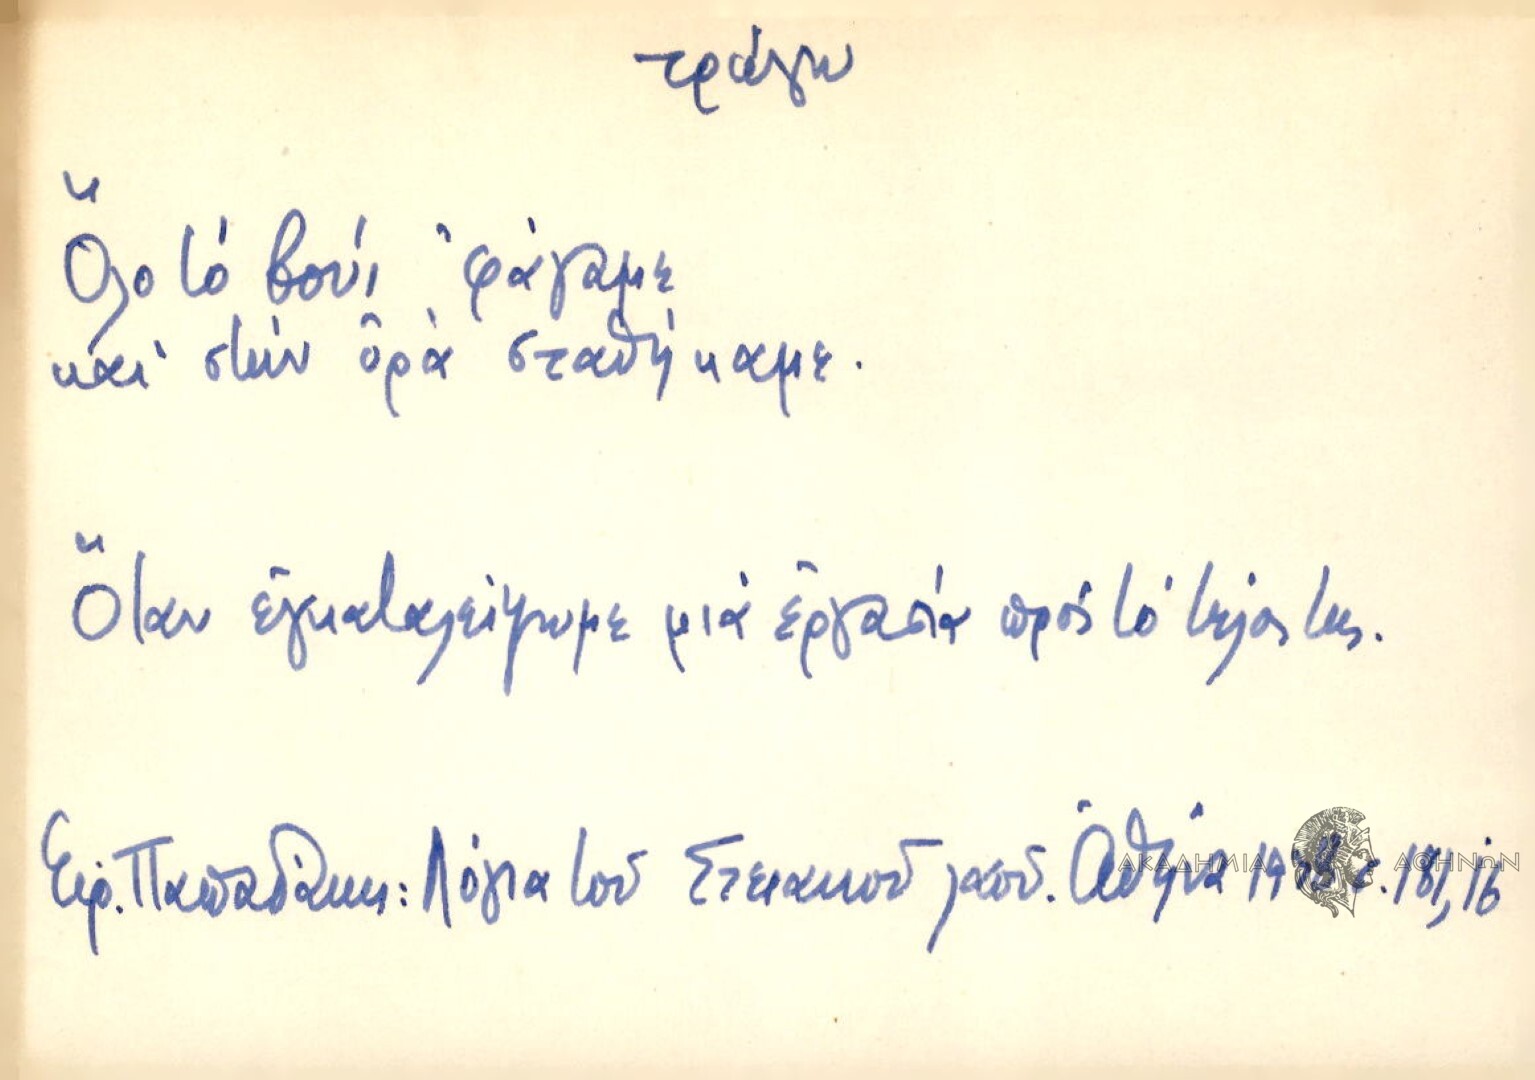 τρώγω
Ὅλο τό βούι ’φάγαμε
καί στήν ὀρά σταθήκαμε.
Ὅταν ἐγκαταλείψωμε μιά ἐργασία πρός τό τέλος της.
Εἰρ. Παπαδάκη: Λόγια τοῦ Στειακοῦ λαοῦ. Ἀθήνα 19 σ. 181, 16
ΑΚΑΔΗΜΙΑ ΑΘΗΝΩΝ